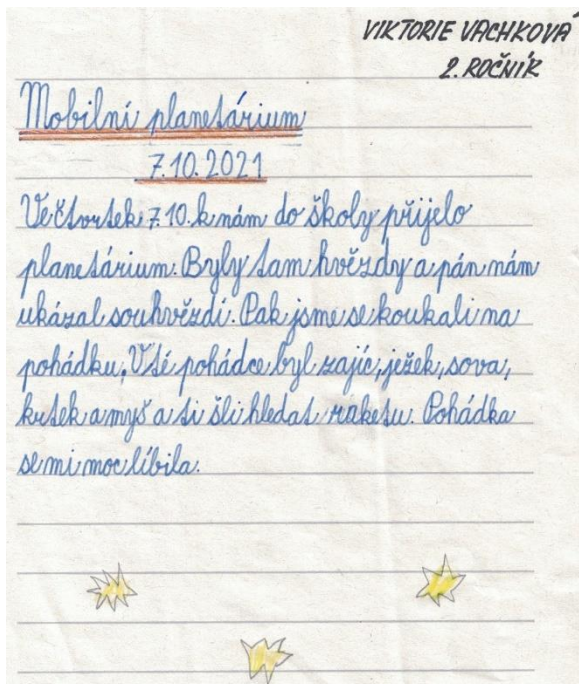 VIKTORIE VACHKOVÁ
2. ROČNÍK
Mobilní planetárium
7.10.2021
Ve čtvrtek 7.10. k nám do školy přijelo
planetárium. Byly tam hvězdy a pán nám
ukázal souhvězdí. Pak jsme se koukali na
pohádku. V té pohádce byl zajíc, ježek, sova,
krtek a myš a ti šli hledat raketu. Pohádka
se mi moc líbila.